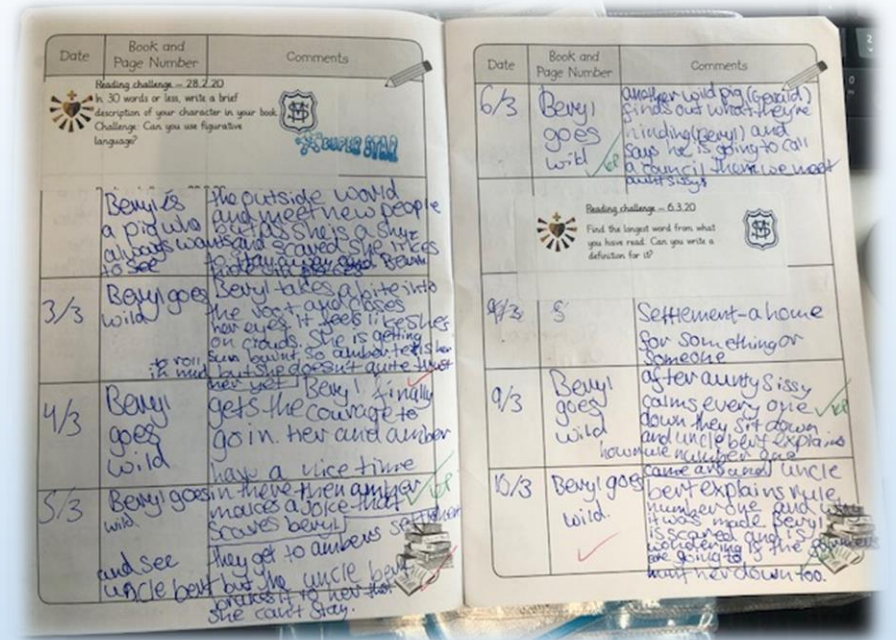 Date
Book and
Page Number
Comments
Reading challenge – 28.2.20
In 30 words or less, write a brief
description of your character in your book.
Challenge: Can you use figurative
language?
SUPER STAR
Beryl is
a pig who
always wants
to see
the outside world
and meet new people
but as she is a shy
and scared she likes
to stay away and
3/3
Beryl goes
wild
Beryl takes a bite into
the root and closes
her eyes. it feels like she's
on clouds. She is getting
sun burnt, so amber tells her
to roll
in mud but she doesn't quite trust
her yet
4/3
Beryl
goes
wild
Beryl finally
gets the courage to
go in. Her and amber
have a nice time
5/3
Beryl goes
wild
in there then amber
makes a joke that
scares beryl
They get to ambers settlement
and see
uncle bert but the uncle bert
makes it to her that
she can't stay.
Date
Book and
Page Number
Comments
6/3
Beryl
goes
wild
another wild pig (Gerald)
finds out what they're
hinding (beryl) and
says he is going to call
a council. there we meet
aunt sissy
Reading challenge – 6.3.20
Find the longest word from what
you have read. Can you write a
definition for it?
Settlement-a home
for something or
someone
9/3
Beryl
goes
wild
after aunty Sissy
calms every one
down they sit down
and uncle bert explains
how rule number one
came around
10/3
Beryl goes
wild.
uncle
bert explains rule
number one and
it was made Beryl
is scared and is
wondering if the
are going to
hunt her down too.